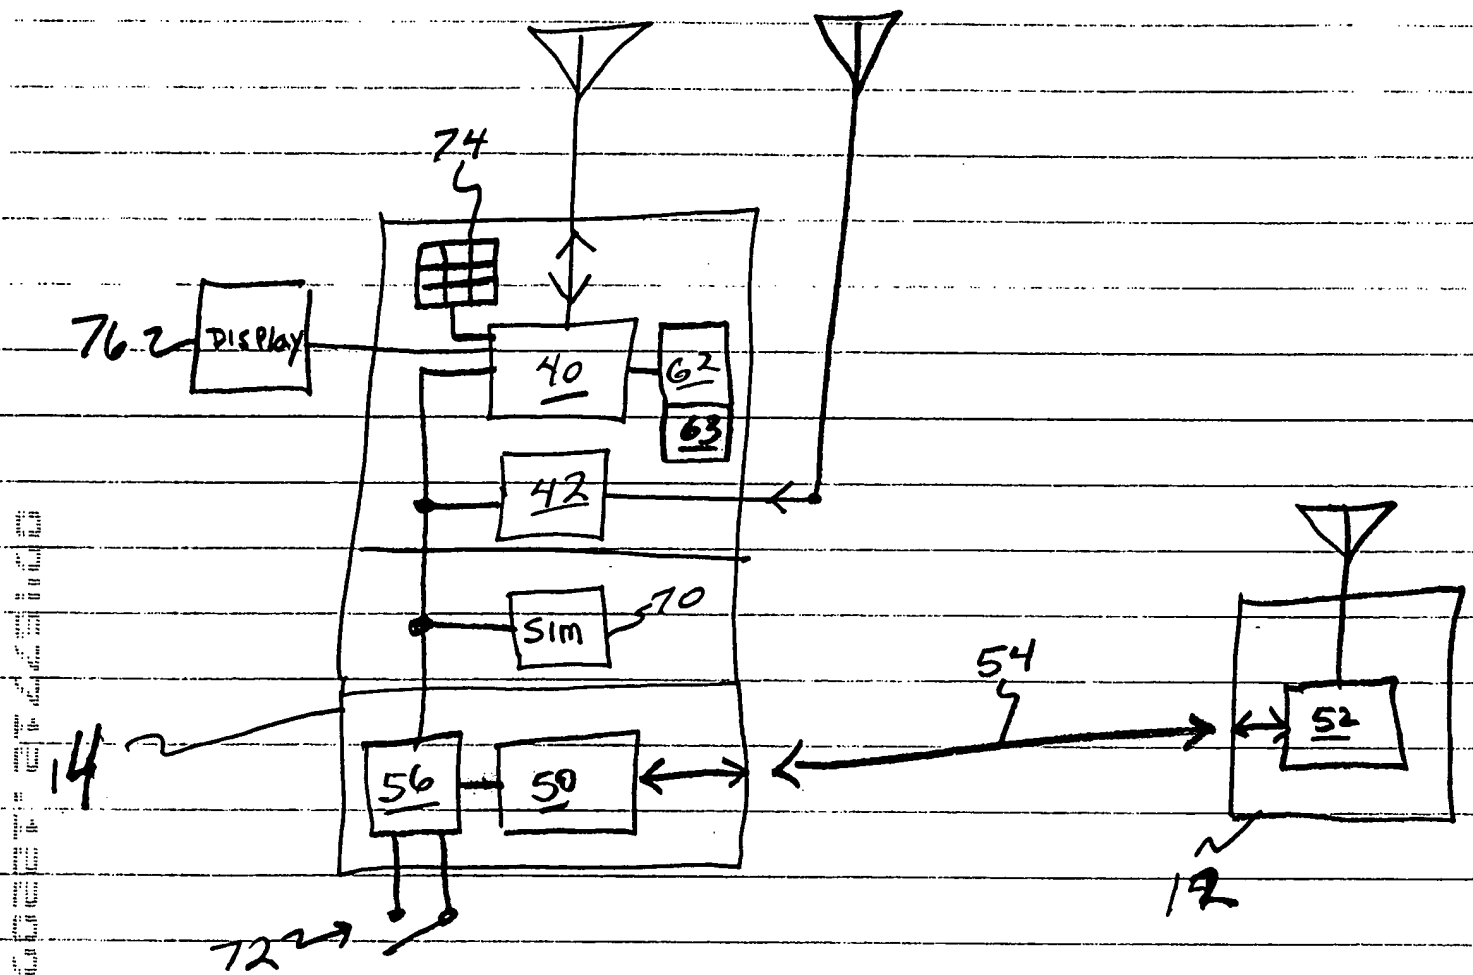 74
76
Display
40
62
63
42
Sim
70
54
52
14
56
50
12
72